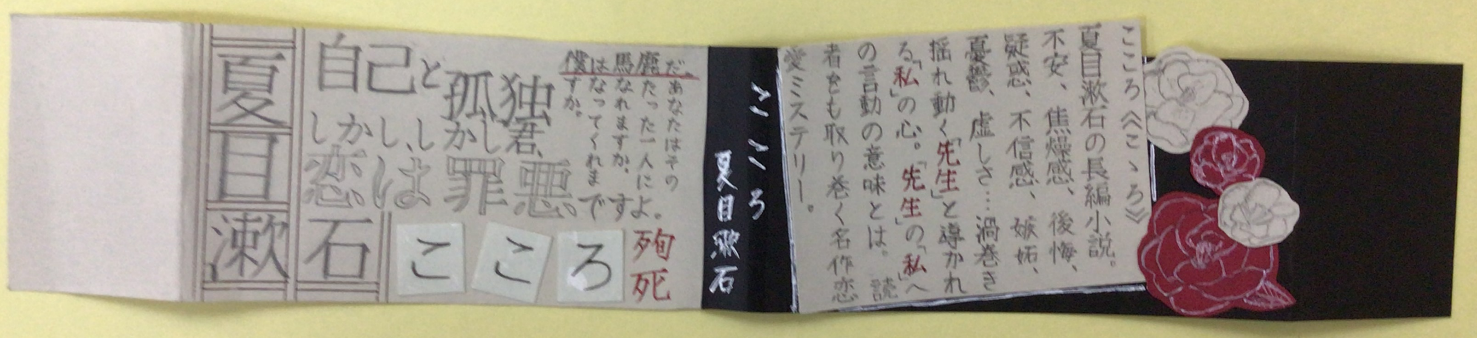 こころ《こゝろ》
夏目漱石の長編小説。
不安、焦燥感、後悔、
疑惑、不信感、嫉妬、
憂鬱、虚しさ…渦巻き
揺れ動く「先生」と導かれ
る「私」の心。「先生」の「私」へ
の言動の意味とは。読
者をも取り巻く名作恋
愛ミステリー。
こころ
夏目漱石
僕は馬鹿だ。
あなたはその
たった一人に
なれますか。
なってくれま
すか。
自己と孤独
しかし、しかし君、
恋は罪悪ですよ。
殉死
こころ
夏目漱石